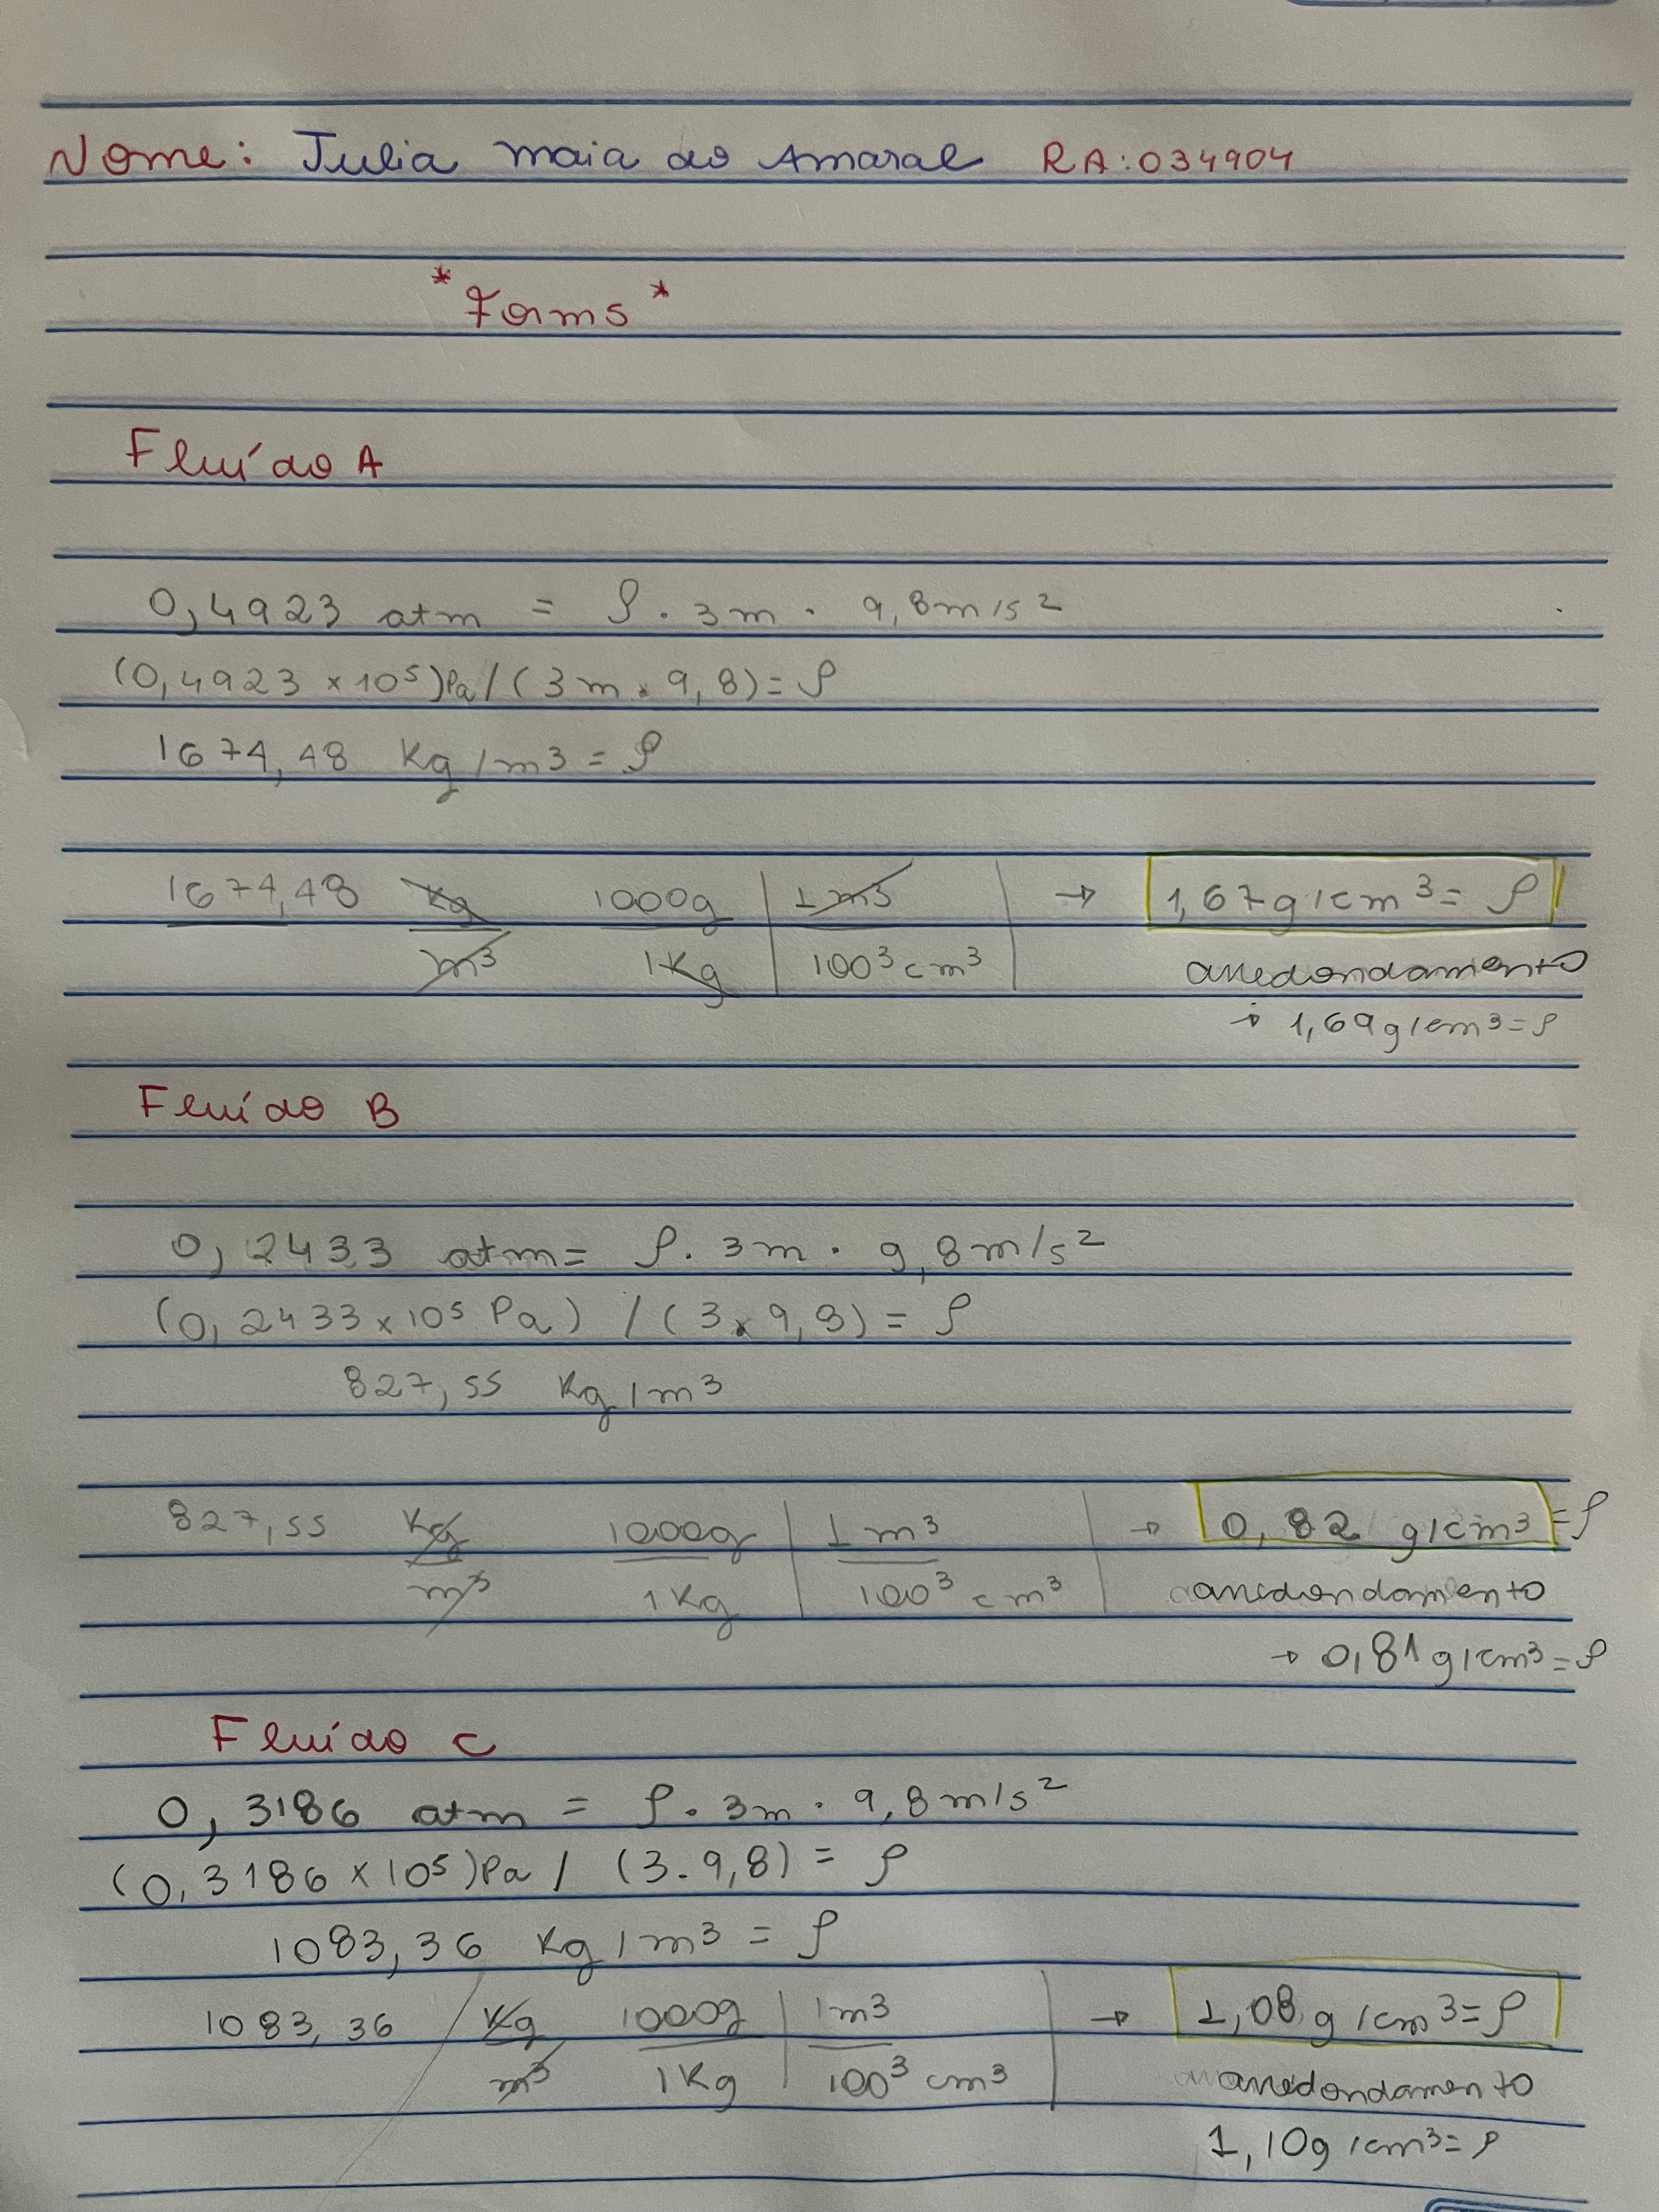 Nome: Julia maia do Amaral RA:034904
*Forms*
Fluído A
0,4923 atm = ρ . 3m . 9,8m/s²
(0,4923 x 10⁵)Pa/(3m x 9,8)= ρ
1674,48 Kg/m3 = ρ
1674,48 Kg 1000g 1m³ → 1,67g/cm³= ρ
m³ 1Kg 100³cm³ arredondamento
→ 1,69g/cm³=ρ
Fluído B
0,2433 atm= ρ. 3m . 9,8m/s²
(0,2433x10⁵ Pa) /(3x9,8)= ρ
827,55 Kg/m³
827,55 Kg 1000g 1m³ → 0,82 g/cm³=ρ
m³ 1Kg 100³ cm³ arredondamento
→ 0,81g/cm³=ρ
Fluído C
0,3186 atm = ρ. 3m . 9,8m/s²
(0,3186 x 10⁵)Pa / (3.9,8) = ρ
1083,36 Kg/m³ = ρ
1083,36 / Kg 1000g 1m³ → 1,08g/cm³=ρ
m³ 1Kg 100³ cm³ arredondamento
1,10g/cm³=ρ